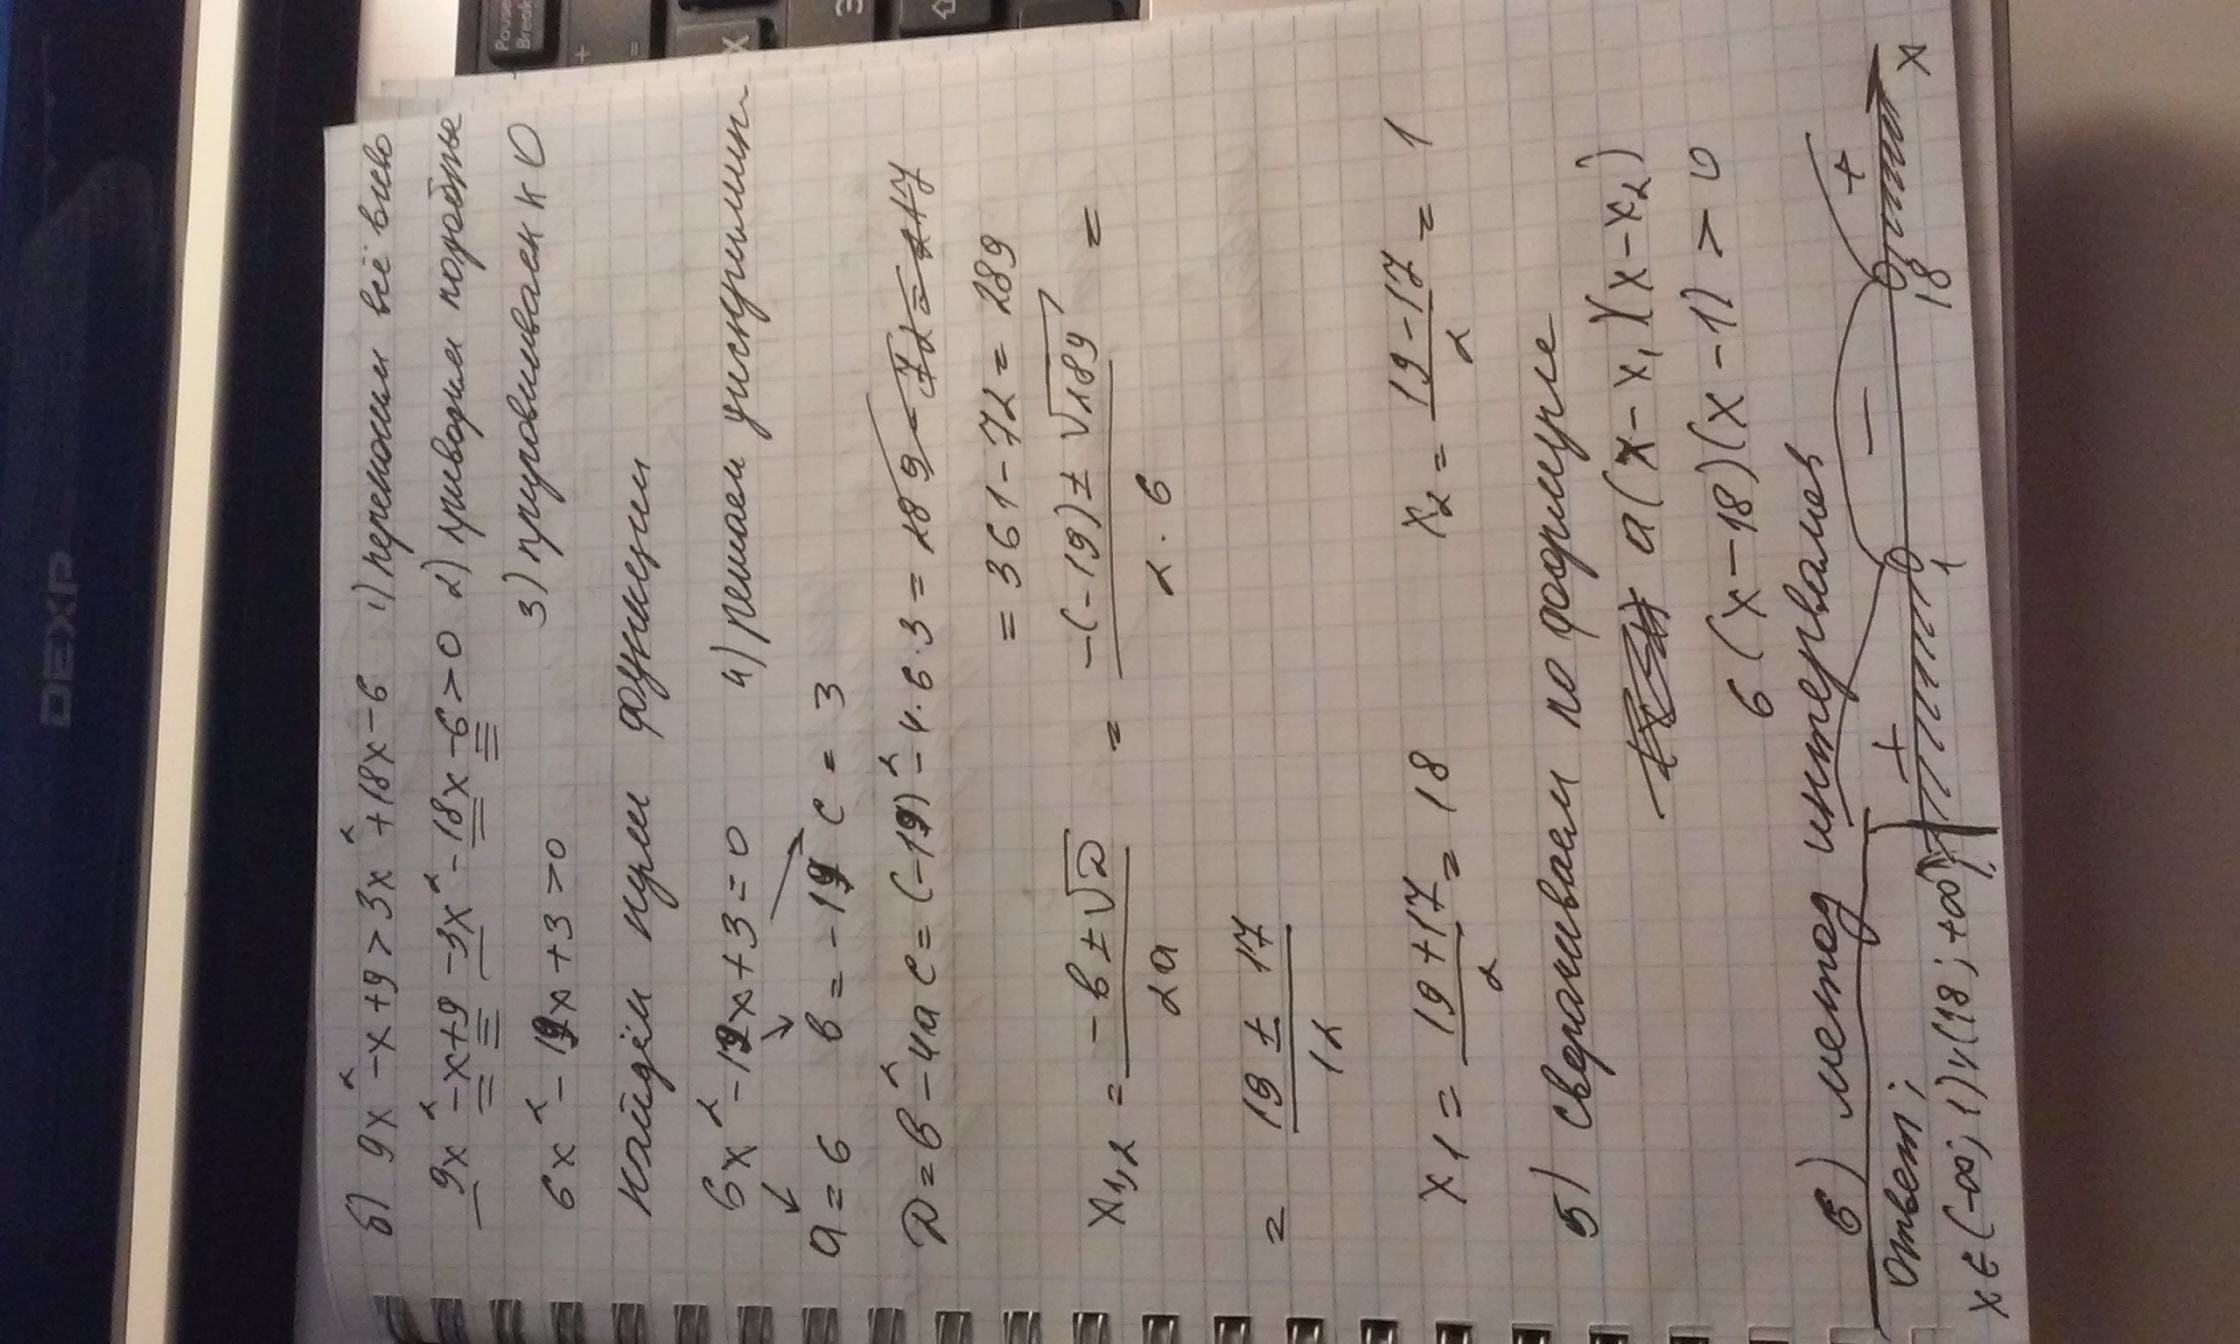 б) 9x² - x + 9 > 3x² + 18x - 6 1) переносим всё влево
9x² - x + 9 - 3x² - 18x - 6 > 0 2) приводим подобные
6x² - 19x + 3 > 0 3) приравниваем к 0
найдём нули функции
6x² - 19x + 3 = 0 4) решаем дискриминант
a = 6 b = -19 c = 3
D = b² - 4ac = (-19)² - 4·6·3 =
= 361 - 72 = 289
x1,2 = (-b ± √D) / 2a = (-(-19) ± √289) / 2·6 =
= (19 ± 17) / 12
x1 = (19 + 17) / 2 = 18 x2 = (19 - 17) / 2 = 1
5) сворачиваем по формуле
a(x - x₁)(x - x₂)
6(x - 18)(x - 1) > 0
6) метод интервалов
+ - +
1 18 x
Ответ:
x ∈ (-∞; 1) ∪ (18; +∞)
DEXP
Pause
Break
+
=
X
Э